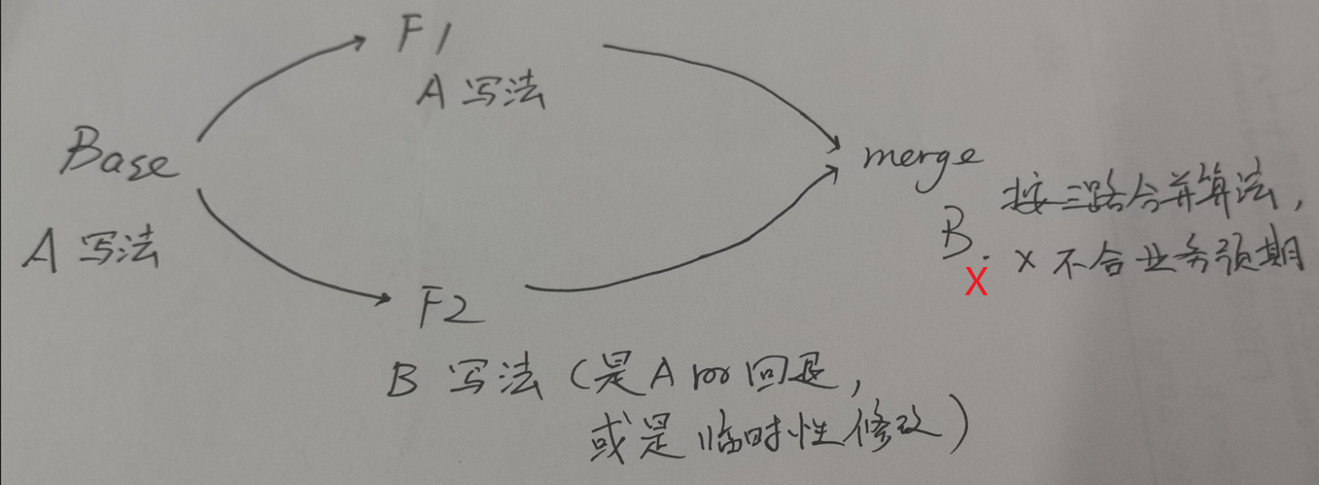 F1
A 写法
Base
A 写法
merge
按三路合并算法,
B. × 不合业务预期
X
F2
B 写法 (是A 的回退,
或是临时性修改)